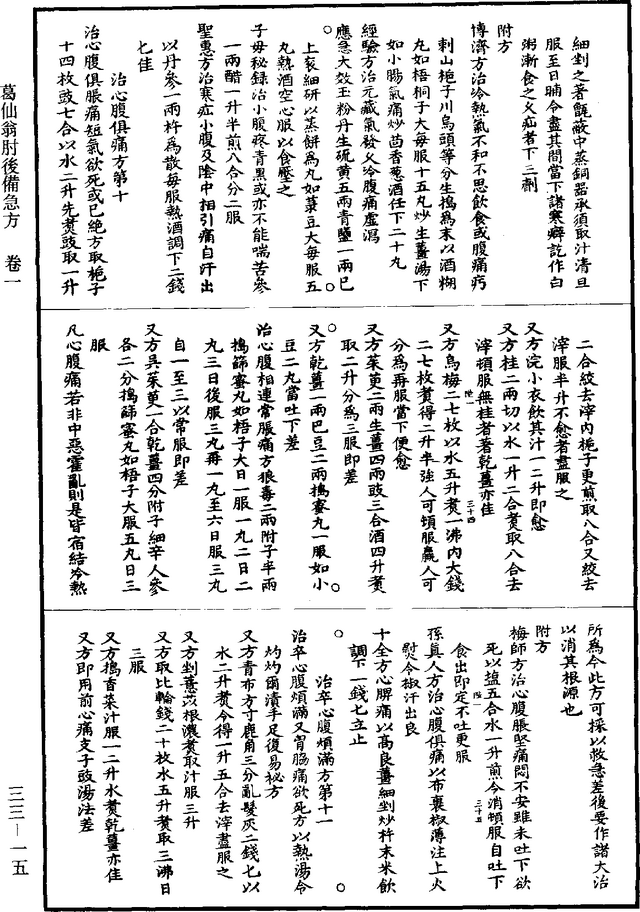 細剉之著甑蔽中蒸銅器承須取汁清旦
服至日晡令盡其間當下諸寒癖訖作白
粥漸食之又疝者下三劑
附方
博濟方治冷熱氣不和不思飲食或腹痛㽱
刺山梔子川烏頭等分生搗為末以酒糊
丸如梧桐子大每服十五丸炒生薑湯下
如小腸氣痛炒茴香葱酒任下二十丸
經驗方治元藏氣發久冷腹痛虛瀉
應急大效玉粉丹生硫黃五兩青鹽一兩已
上衮細研以蒸餅為丸如菉豆大每服五
丸熱酒空心服以食壓之
子母秘錄治小腹疼青黑或亦不能喘苦參
一兩醋一升半煎八合分二服
聖惠方治寒疝小腹及陰中相引痛自汗出
以丹參一兩杵為散每服熱酒調下二錢
七佳
治心腹俱痛方第十
治心腹俱脹痛短氣欲死或已絕方取梔子
十四枚豉七合以水二升先煑豉取一升
二合絞去滓內梔子更煎取八合又絞去
滓服半升不愈者盡服之
又方浣小衣飲其汁一二升即愈
又方桂二兩切以水一升二合煑取八合去
滓頓服無桂者著乾薑亦佳
又方烏梅二七枚以水五升煑一沸內大錢
二七枚煑得二升半強人可頓服羸人可
分為再服當下便愈
又方茱萸二兩生薑四兩豉三合酒四升煑
取二升分為三服即差
又方乾薑一兩巴豆二兩搗蜜丸一服如小
豆二丸當吐下差
治心腹相連常脹痛方狼毒二兩附子半兩
搗篩蜜丸如梧子大日一服一丸二日二
丸三日後服三丸再一丸至六日服三丸
自一至三以常服即差
又方吳茱萸一合乾薑四分附子細辛人參
各二分搗篩蜜丸如梧子大服五丸日三
服
凡心腹痛若非中惡霍亂則是皆宿結冷熱
所為今此方可採以救急差後要作諸大治
以消其根源也
附方
梅師方治心腹脹堅痛悶不安雖未吐下欲
死以鹽五合水一升煎令消頓服自吐下
食出即定不吐更服
孫真人方治心腹俱痛以布裹椒薄注上火
熨令椒汗出良
十全方心脾痛以高良薑細剉炒杵末米飲
調下一錢七立止
治卒心腹煩滿方第十一
治卒心腹煩滿又胷脇痛欲死方以熱湯令
灼灼爾漬手足復易秘方
又方青布方寸鹿角三分亂髮灰二錢七以
水二升煑令得一升五合去滓盡服之
又方剉薏苡根濃煑取汁服三升
又方取比輪錢二十枚水五升煑取三沸日
三服
又方搗香菜汁服一二升水煑乾薑亦佳
又方即用前心痛支子豉湯法差
葛仙翁肘後備急方 卷一
三三—一五